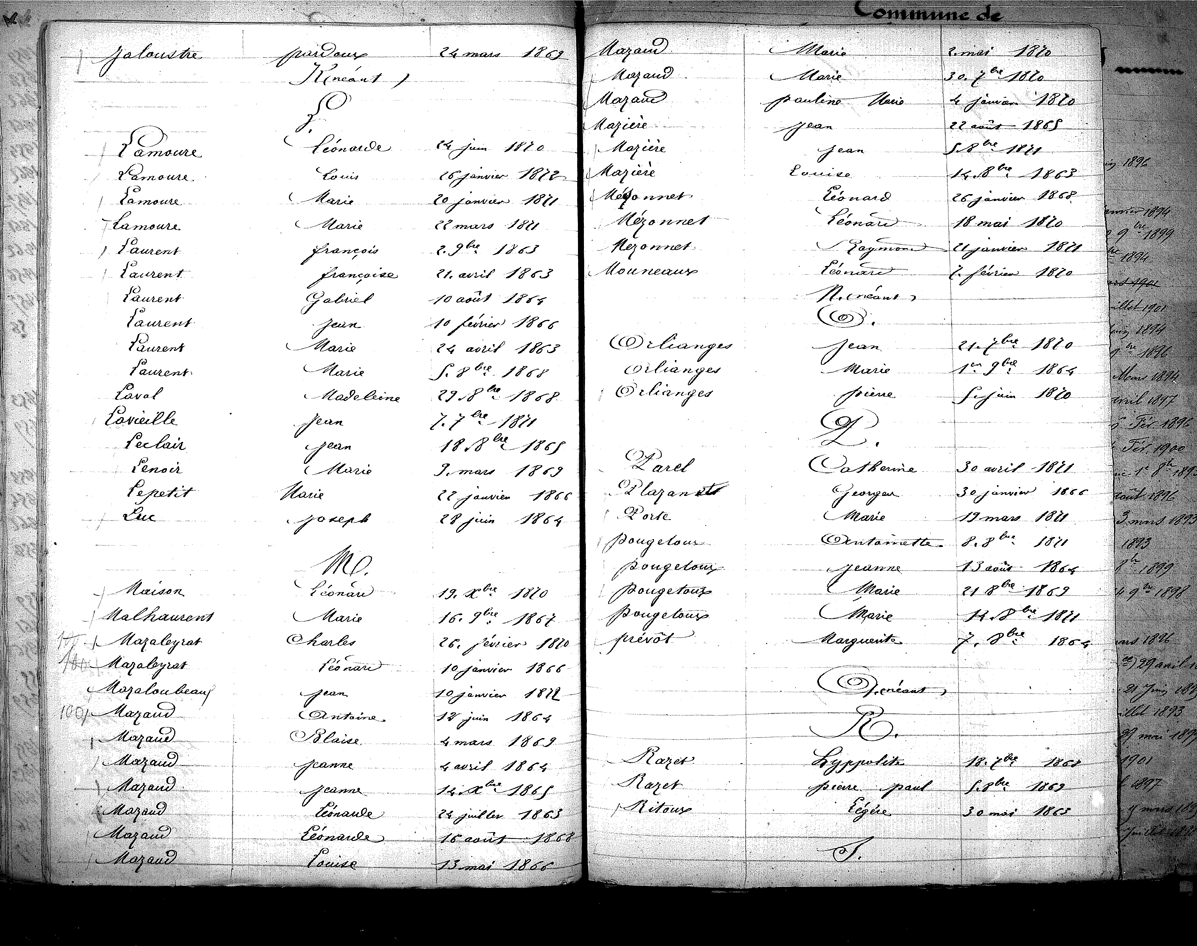 Commune de
Jaloustre pardoux 24 mars 1869
K (néant)
L.
Lamoure Léonarde 24 juin 1870
Lamoure Louis 26 janvier 1872
Lamoure Marie 20 janvier 1871
Lamoure Marie 22 mars 1871
Laurent françois 2. 9bre 1863
Laurent françoise 21. avril 1863
Laurent Gabriel 10 août 1864
Laurent jean 10 février 1866
Laurent Marie 24 avril 1863
Laurent Marie 5. 8bre 1868
Laval Madeleine 29. 8bre 1868
Lavieille jean 7. 7bre 1871
Leclair jean 18. 8bre 1865
Lenoir Marie 9. mars 1869
Lepetit Marie 22 janvier 1866
Luc joseph 28 juin 1864
M.
Maison Léonard 19. Xbre 1870
Malhaurent Marie 16. 9bre 1867
Mazaleyrat Charles 26. février 1870
Mazaleyrat Léonard 10 janvier 1866
Mazaloubeaux jean 10 janvier 1872
100 Mazaud Antoine 18 juin 1864
Mazaud Blaise 4 mars 1869
Mazaud jeanne 4 avril 1864
Mazaud jeanne 14. Xbre 1865
Mazaud Léonarde 24 juillet 1863
Mazaud Léonarde 16 août 1868
Mazaud Louise 13 mai 1866
Mazaud Marie 2. mai 1870
Mazaud Marie 30. 7bre 1870
Mazaud pauline Marie 4 janvier 1870
Mazière jean 22 août 1865
Mazière jean 5 8bre 1871
Mazière Louise 14. 8bre 1863
Mézonnet Léonard 26 janvier 1868
Mézonnet Léonard 18 mai 1870
Mezonnet Raymond 21 janvier 1871
Mouneaux Léonard 7. février 1870
N. (néant)
O.
Orlianges jean 21. 7bre 1870
Orlianges Marie 1er 9bre 1864
Orlianges pierre 5. juin 1870
P.
Parel Catherine 30 avril 1871
Plazanet Georges 30 janvier 1866
Porte Marie 19 mars 1871
pougetoux Antoinette 8. 8bre 1871
pougetoux jeanne 13 août 1864
pougetoux Marie 21 8bre 1869
pougetoux Marie 14. 8bre 1871
prévôt Marguerite 7. 8bre 1864
Q. (néant)
R.
Razet hyppolite 18. 7bre 1868
Razet pierre paul 5. 8bre 1869
Ritoux Légère 30 mai 1863
S.